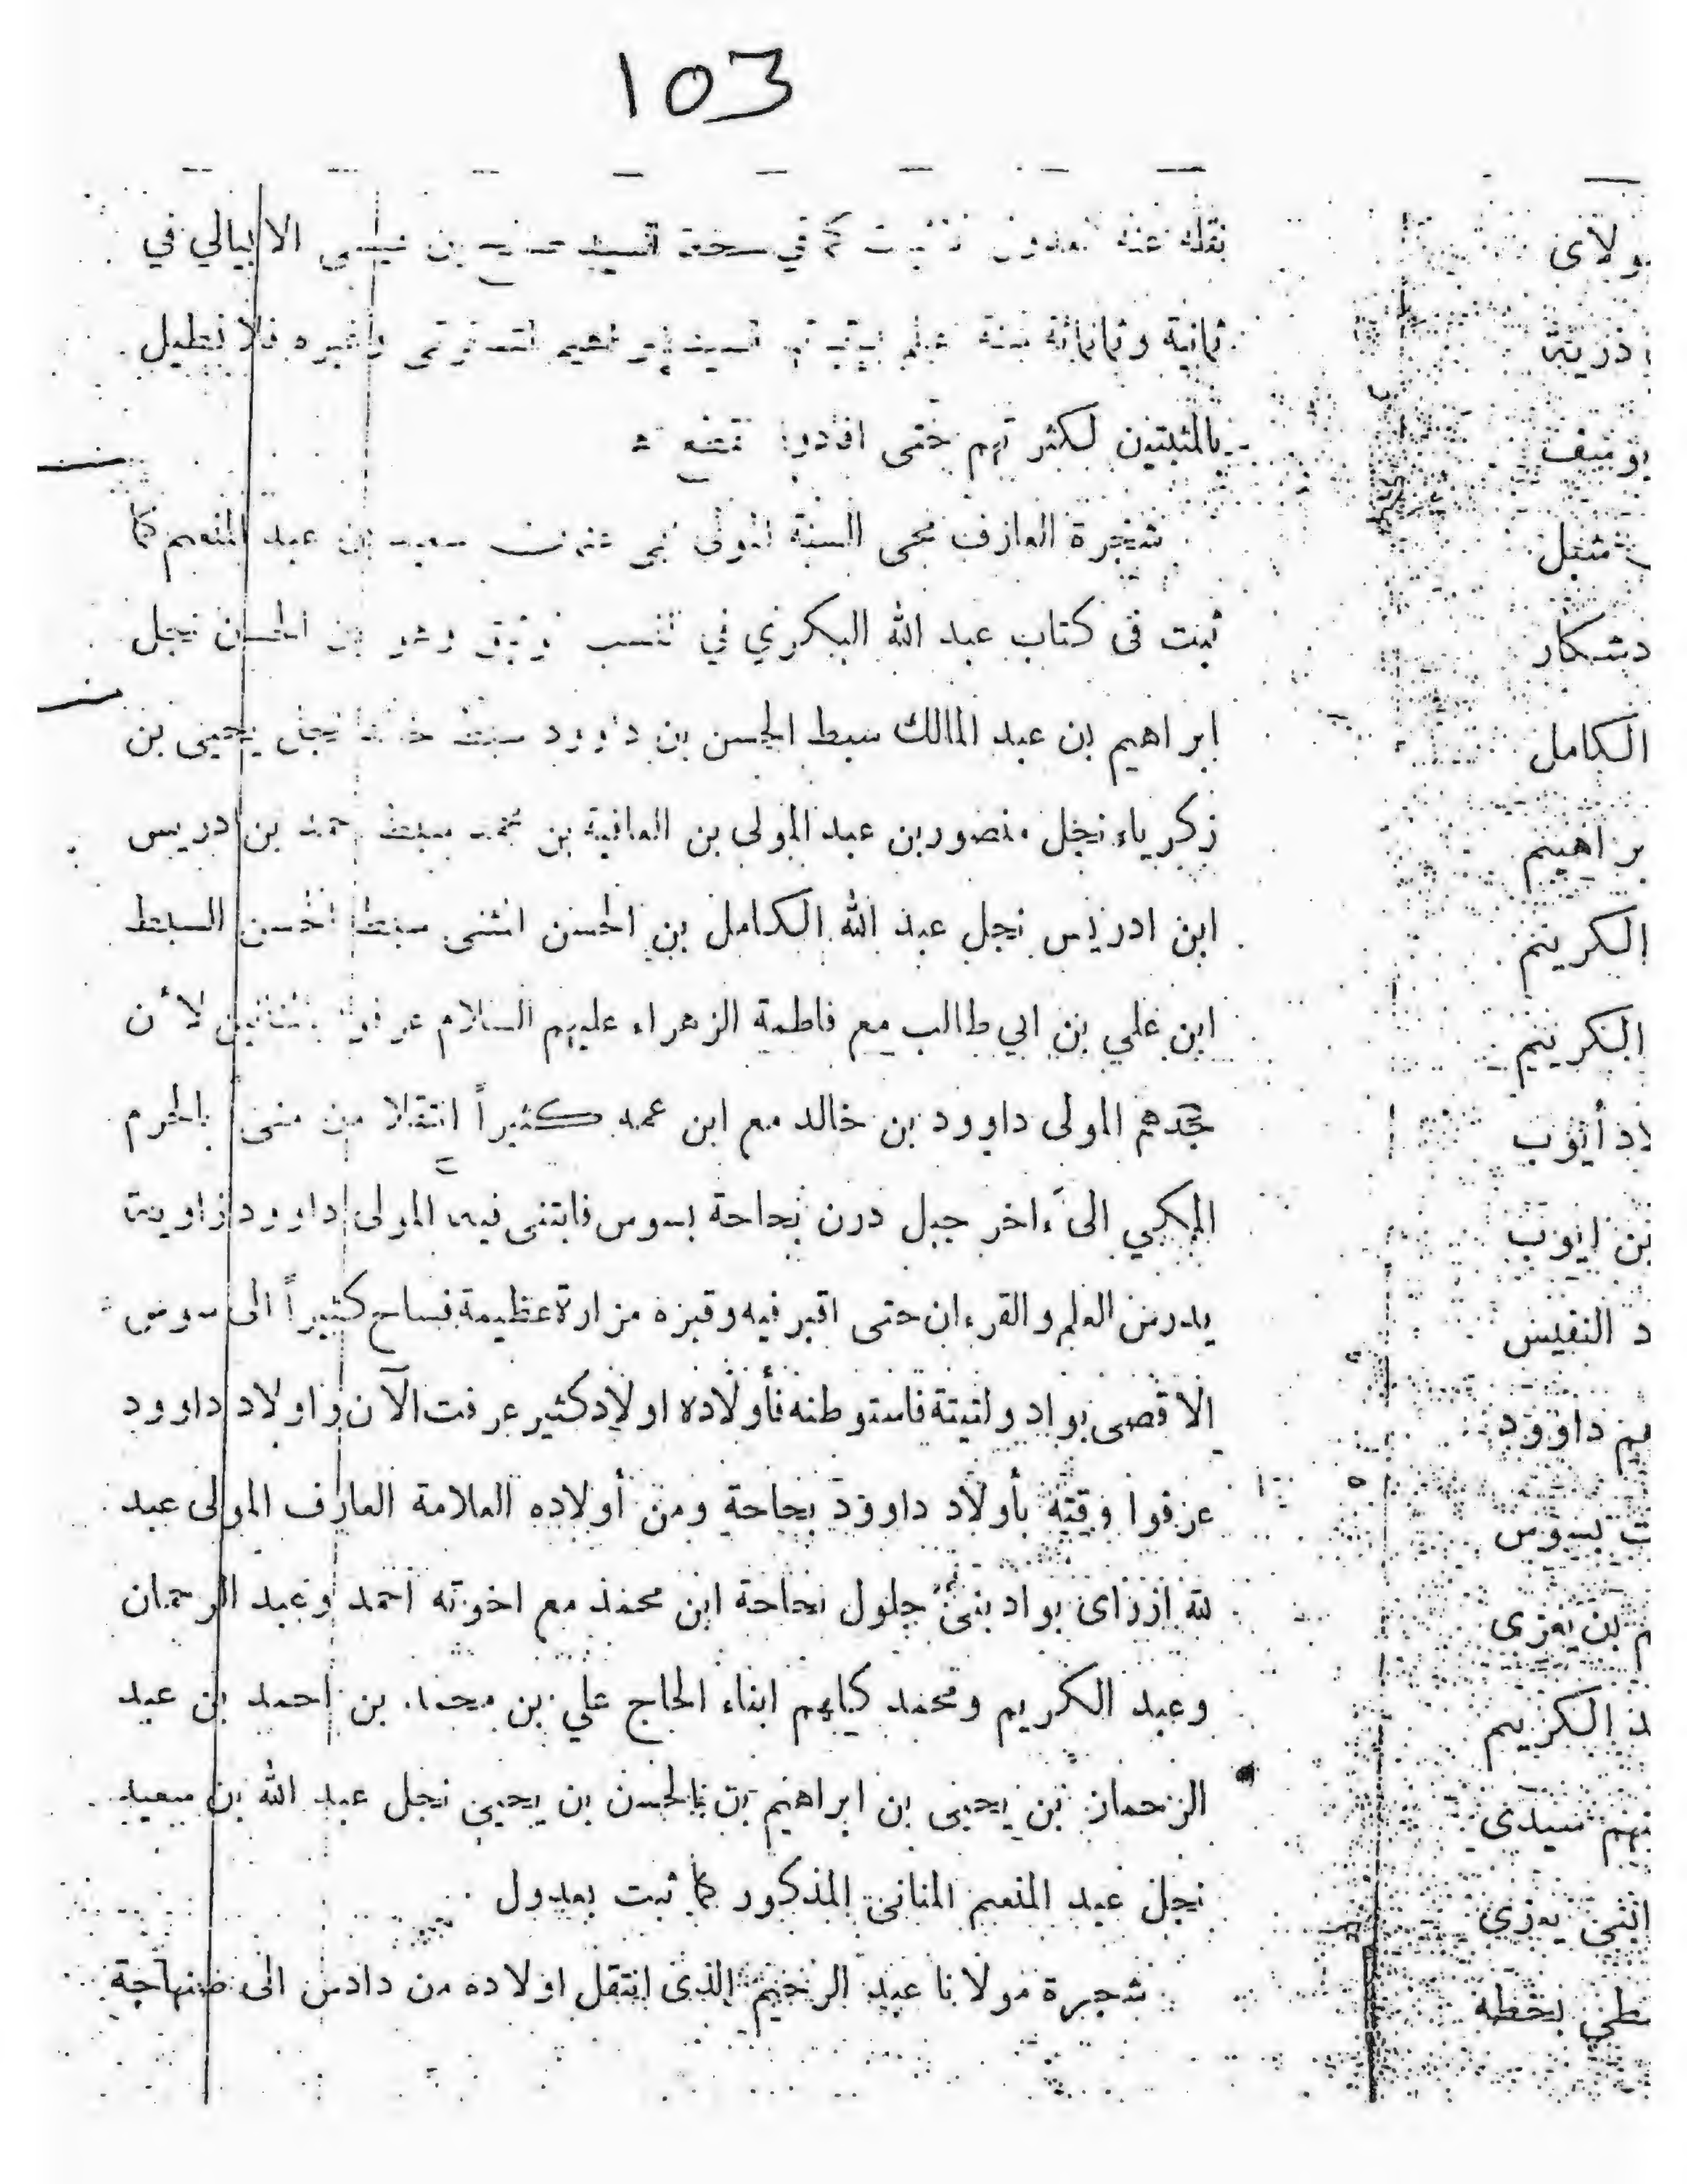 103
في الابيالي
ثمانية وثمانمائة سنة وغيره فلا نطيل
بالمثبتين لكثرتهم حتى افادوا
شجرة العارف محى السنة المولى عبد المنعم كما
ثبت فى كتاب عبد الله البكري في الحسن نجل
ابراهيم بن عبد المالك سبط الحسن بن داوود نجل يحيى بن
زكرياء نجل منصور بن عبد المولى بن العافية بن بن ادريس
ابن ادريس نجل عبد الله الكامل بن الحسن المثنى الحسن السبط
ابن علي بن ابي طالب مع فاطمة الزهراء عليهم السلام لأن
جدهم المولى داوود بن خالد مع ابن عمه كثيراً انتقلا من منى بالحرم
المكي الى ءاخر جبل درن بحاحة بسوس فابتنى فيه المولى داوود زاوية
يدرس العلم والقرءان حتى اقبر فيه وقبره مزارة عظيمة فساح كثيراً الى سوس
الاقصى بواد ولتيتة فاستوطنه فأولاده اولاد كثير عرفت الآن واولاد داوود
عرفوا وقته بأولاد داوود بحاحة ومن أولاده العلامة العارف المولى عبد
لله ازراى بواد بنى جلول بحاحة ابن محمد مع اخوته احمد وعبد الرحمان
وعبد الكريم ومحمد كلهم ابناء الحاج علي بن محمد بن احمد بن عبد
الرحمان بن يحيى بن ابراهيم بن بالحسن بن يحيى نجل عبد الله بن سعيد
نجل عبد المنعم المنانى المذكور كما ثبت بعدول
شجرة مولانا عبد الرحيم الذى انتقل اولاده من دادس الى صنهاجة
ولاى
ذريته
الكامل
براهيم
الكريم
الكريم
لاد أيوب
بن ايوب
د النفيس
داوود
ت بسوس
بن يعزى
د الكريم
سيدى
يعزى
بخطه